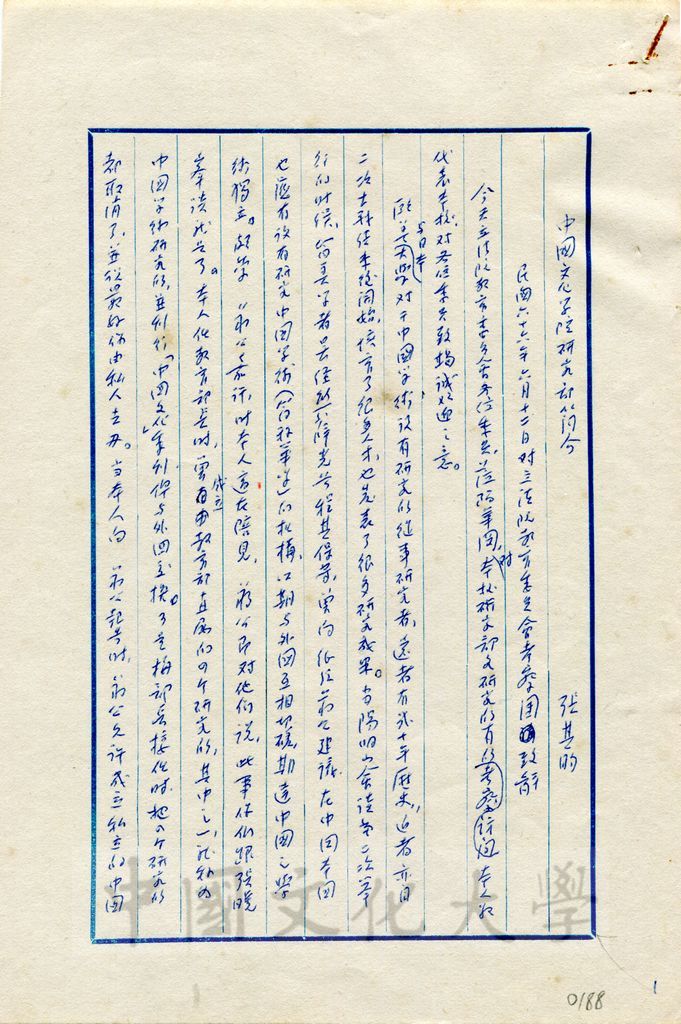 中國文化學院研究部簡介
張其昀
民國六十六年六月十二日對立法院教育委員會考察團致辭
今天立法院教育委員會各位委員,蒞臨華岡,對本校研究部及研究所有所考察訪問,本人謹
代表本校,對各位委員致竭誠歡迎之意。
歐美與日本大學對于中國學術設有研究所從事研究者,遠者有幾十年歷史,近者亦自
二次大戰結束後開始,培育了很多人才,也發表了很多研究成果。當陽明山會談第二次舉
行的时候,旅美學者吳經熊陳先生程其保等,曾向 總統 蔣公建議,在中國本國
也應有設有研究中國學術(簡稱華學)的機構,以期與外國互相切磋,期達中國之學
術獨立。承 蔣公嘉許,时本人適在陪見,蔣公即對他們說,此事你們跟張曉
峯談就是了。本人任教育部長时,曾成立由教育部直屬的四个研究所,其中之一就为
中國學術研究所,並刊行「中國文化」季刊俾與外國交換。了至梅部長接任时,把四个研究所
都取消了,並說最好係由私人去办。当本人向 蔣公報告时,蔣公允許成立私立的中國
中國文化大學
1
0188